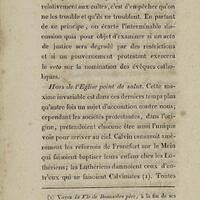 relativement aux cultes, c'est d'empêcher qu'on
ne les trouble et qu'ils ne troublent. En partant
de ce principe, on écarte l'interminable dis-
cussion quia pour objet d'examiner si un acte
de justice sera dégradé par des restrictions
et si un gouvernement protestant exercera
le veto sur la nomination des évêques catho-
liques.
Hors de l'Eglise point de salut. Cette ma-
xime invariable est dans ces derniers temps plus
qu'autrefois un sujet d'accusation contre nous;
cependant les sociétés protestantes, dans l'ori-
gine, prétendaient chacune être aussi l'unique
voie pour arriver au ciel. Calvin censurait amè-
rement les réformés de Francfort sur le Mein
qui faisaient baptiser leurs enfans chez les Lu-
thériens; les Luthériens damnoient ceux d'en-
tr'eux qui se faisaient Calvinistes (1). Toutes
(1) Voyez la Vie de Beausobre père, à la fin de ses